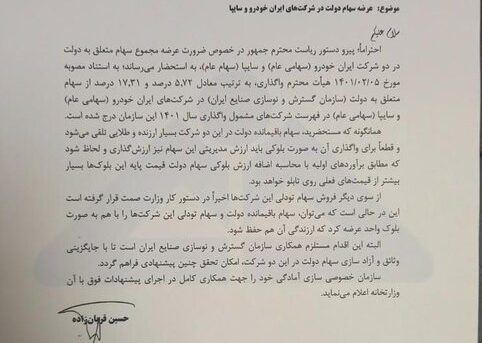 موضوع: عرضه سهام دولت در شرکت‌های ایران خودرو و سایپا
سلام علیکم
احتراماً؛ پیرو دستور ریاست محترم جمهور در خصوص ضرورت عرضه مجموع سهام متعلق به دولت در
دو شرکت ایران خودرو (سهامی عام) و سایپا (سهام عام)، به استحضار می‌رساند؛ به استناد مصوبه
مورخ ۱۴۰۱/۰۲/۰۵ هیأت محترم واگذاری، به ترتیب معادل ۵.۷۲ درصد و ۱۷.۳۱ درصد از سهام
متعلق به دولت (سازمان گسترش و نوسازی صنایع ایران) در شرکت‌های ایران خودرو (سهامی عام) و
سایپا (سهامی عام) در فهرست شرکت‌های مشمول واگذاری سال ۱۴۰۱ این سازمان درج شده است.
همانگونه که مستحضرید، سهام باقیمانده دولت در این دو شرکت بسیار ارزنده و طلایی تلقی می‌شود
و قطعاً برای واگذاری آن به صورت بلوکی باید ارزش مدیریتی این سهام نیز ارزش‌گذاری و لحاظ شود
که مطابق برآوردهای اولیه با محاسبه اضافه ارزش بلوکی سهام دولت قیمت پایه این بلوک‌ها بسیار
بیشتر از قیمت‌های فعلی روی تابلو خواهد بود.
از سوی دیگر فروش سهام تودلی این شرکت‌ها اخیراً در دستور کار وزارت صمت قرار گرفته است
این در حالی است که می‌توان، سهام باقیمانده دولت و سهام تودلی این شرکت‌ها را با هم به صورت
بلوک واحد عرضه کرد که ارزندگی آن هم حفظ شود.
البته این اقدام مستلزم همکاری سازمان گسترش و نوسازی صنایع ایران است تا با جایگزینی
وثائق و آزاد سازی سهام دولت در این دو شرکت، امکان تحقق چنین پیشنهادی فراهم گردد.
سازمان خصوصی سازی آمادگی خود را جهت همکاری کامل در اجرای پیشنهادات فوق با آن
وزارتخانه اعلام می‌نماید.
حسین قربان‌زاده